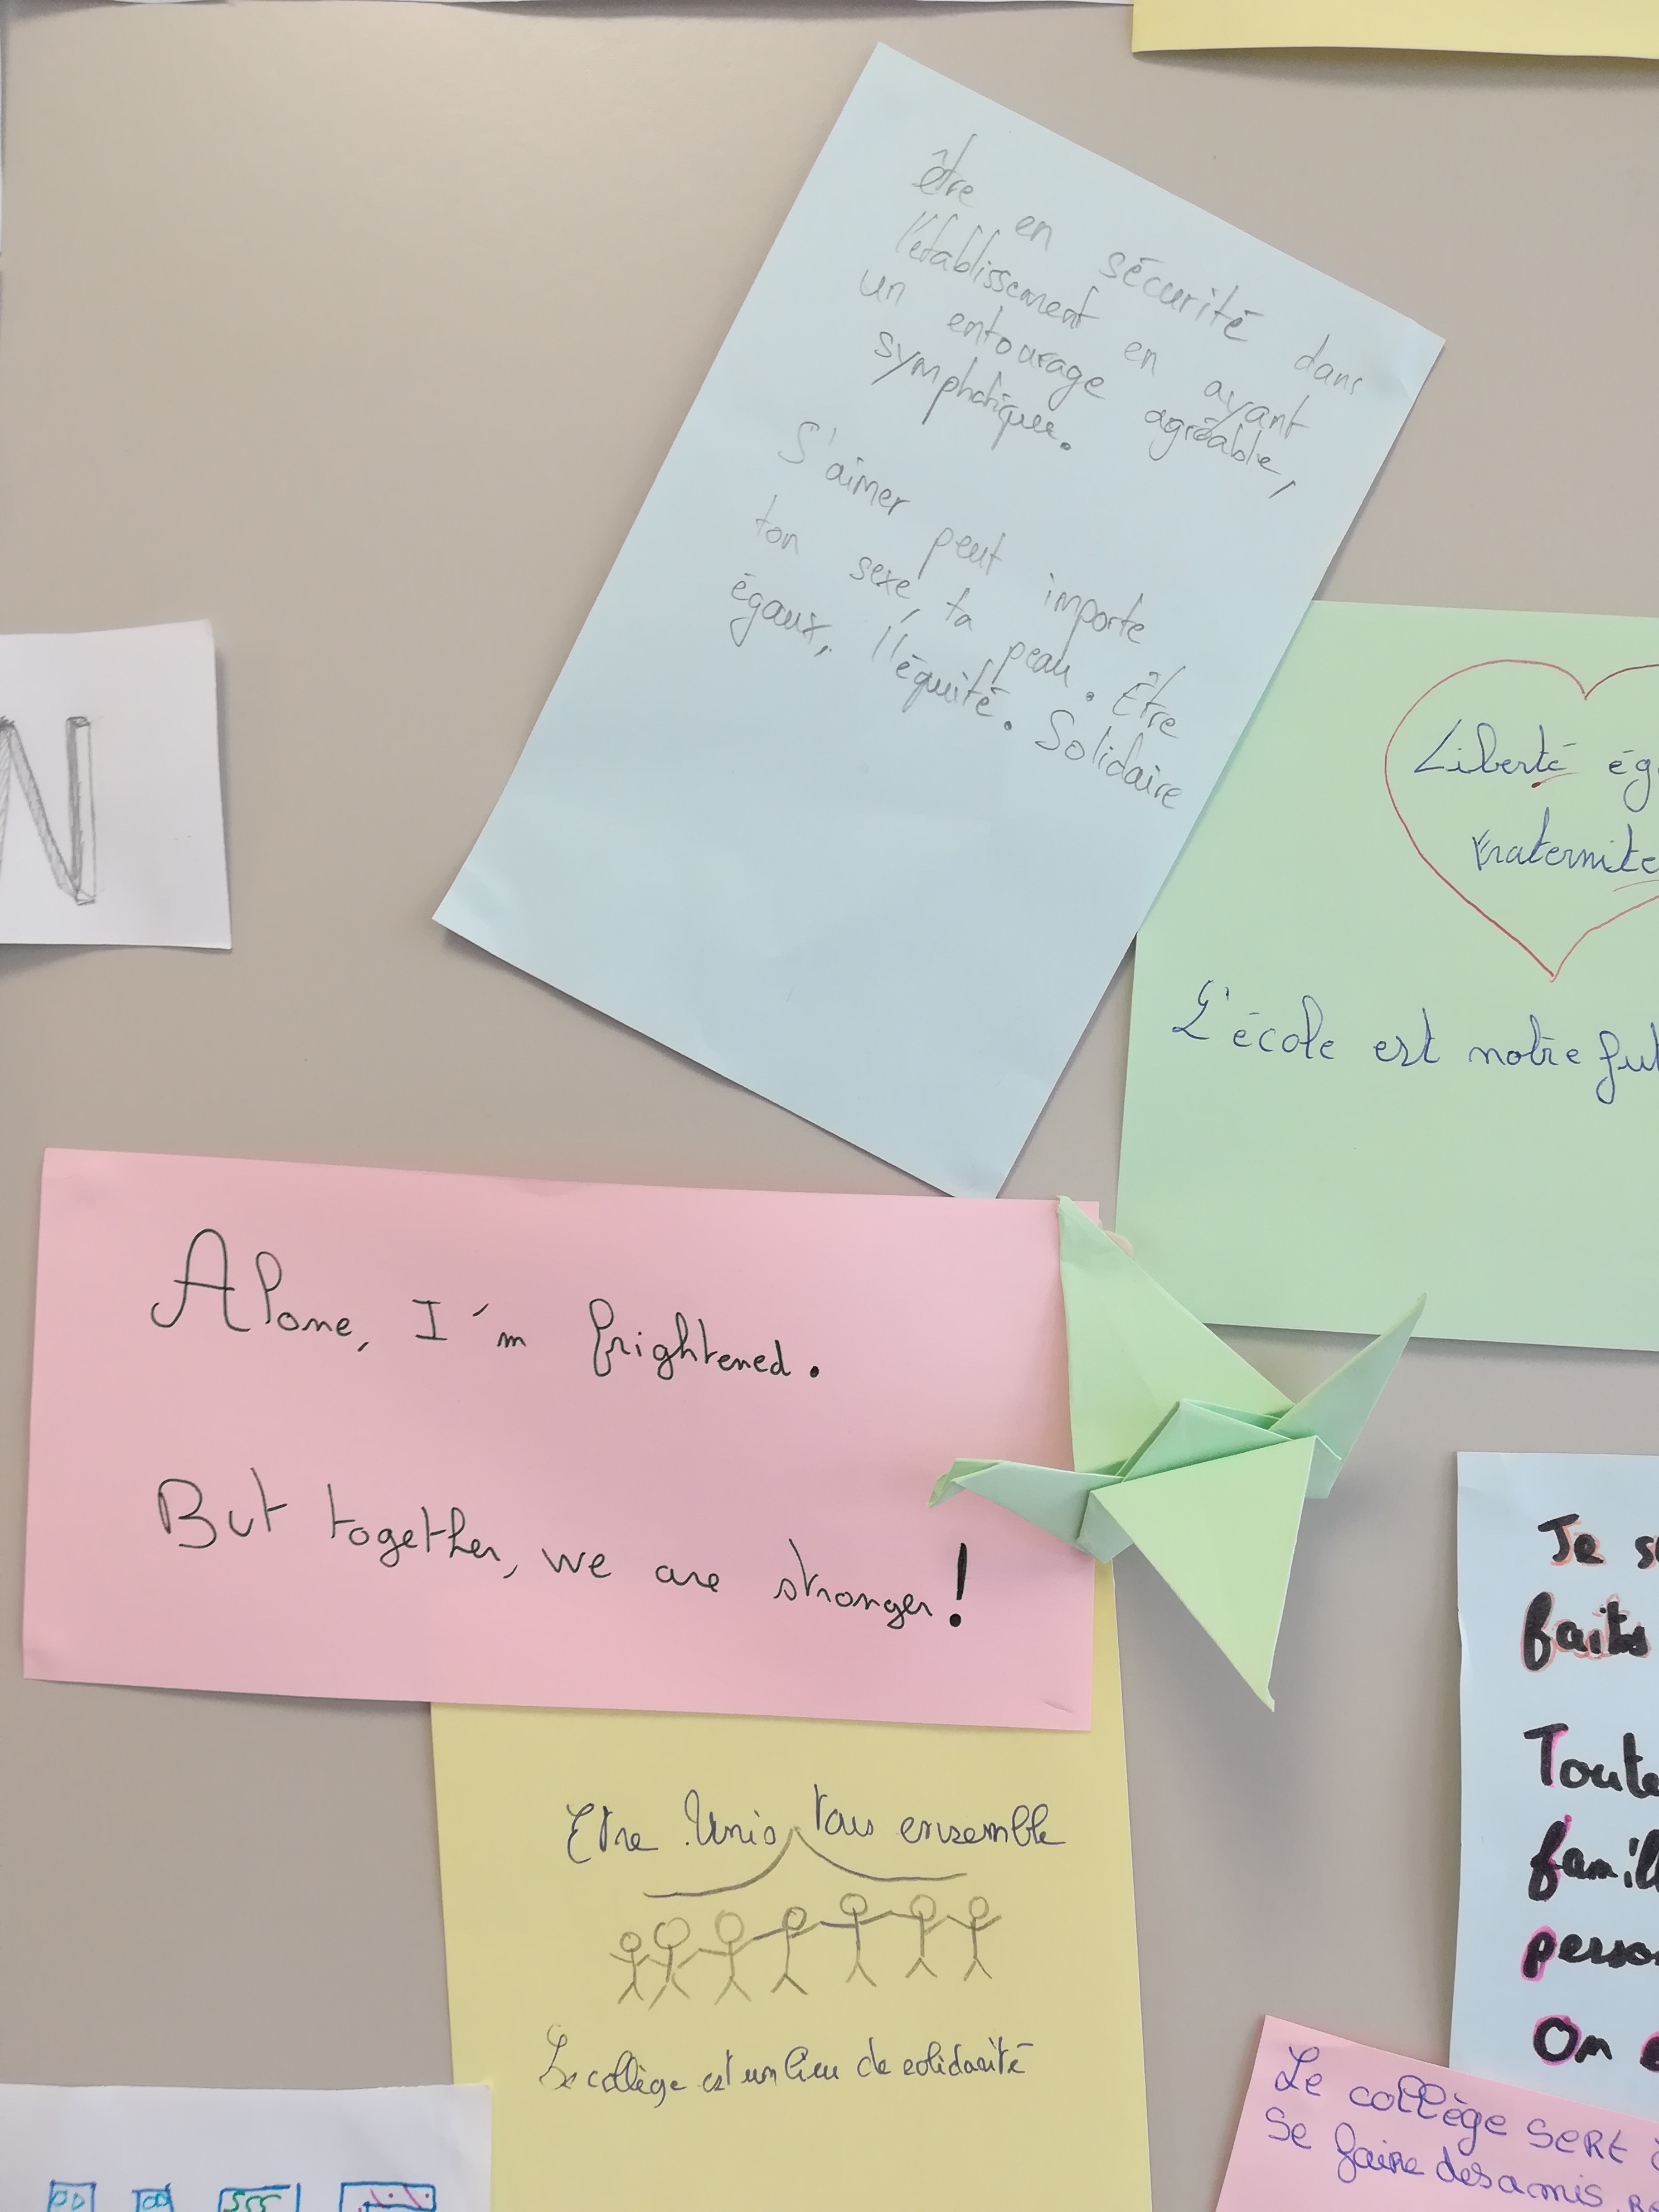 être en sécurité dans
l'établissement en ayant
un entourage agréable,
symphatique.
S'aimer peut importe
ton sexe, ta peau. Être
égaux, l'équité. Solidaire
N
Liberté ég
Fraternite
L'école est notre fut
Alone, I'm frightened.
But together, we are stronger!
Etre Unis tous ensemble
Le collège est un lieu de solidarité
Je s
faits
Toute
famill
person
On
Le collège SERt à
Se faire des amis.